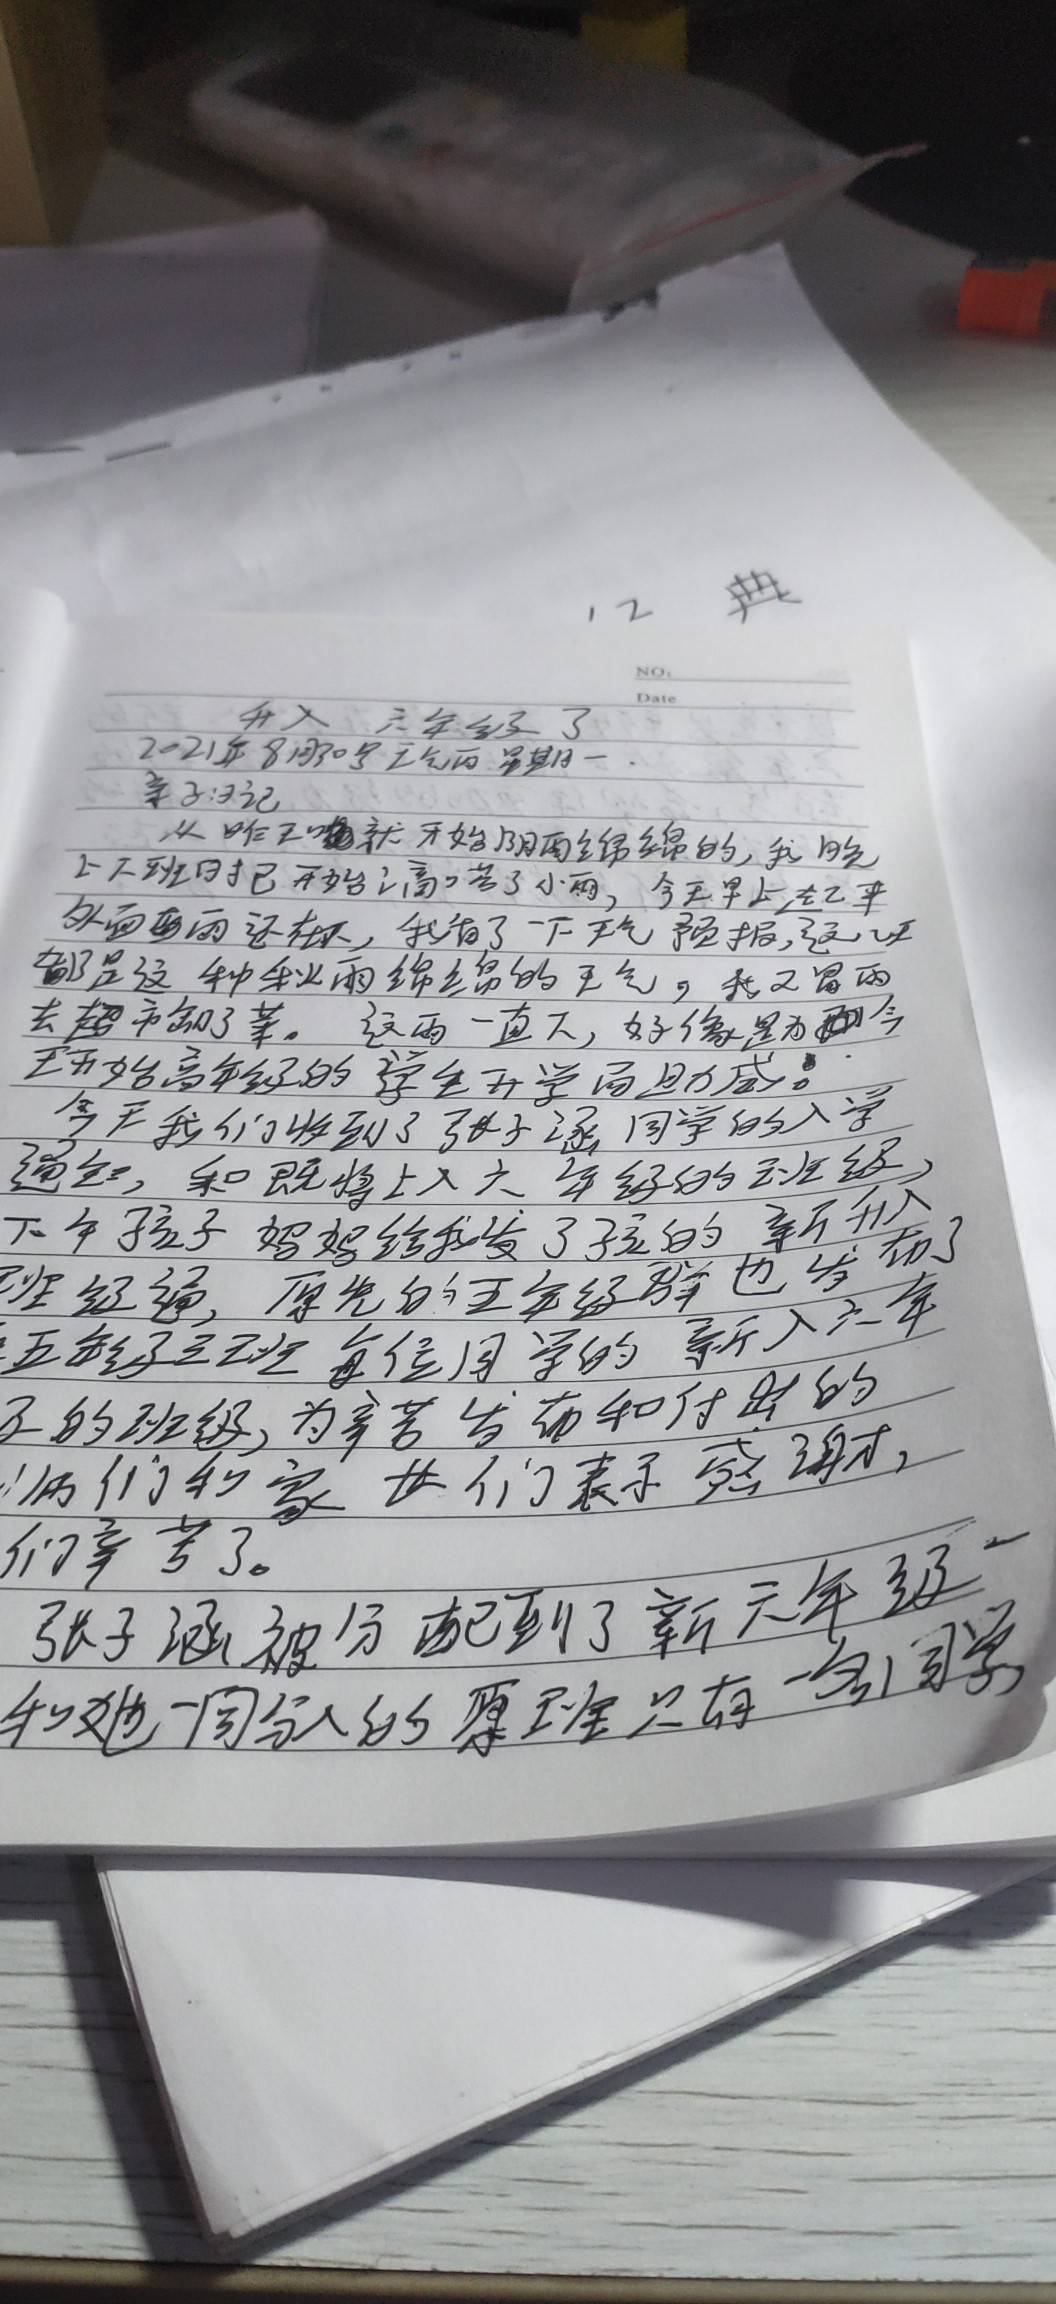 12 典
NO:
Date
升入 六年级了
2021年8月30号 天气雨 星期一.
亲子日记
从昨天就开始阴雨绵绵的,我晚
上下班时已开始滴嗒了小雨, 今天早上起来
外面雨还在下, 我看了一下天气预报,这几天
都是这种秋雨绵绵的天气, 我又冒雨
去超市卸了菜。 这雨一直下, 好像是为今
天开始高年级的学生开学而助威。
今天我们收到了张子涵同学的入学
通知, 和既将上入六年级的班级,
下午孩子妈妈给我发了孩的新升入
班级通, 原先的五年级群也发布了
五年级三班每位同学的新入六年
的班级, 为辛苦发布和付出的
们和家长们表示感谢,
们辛苦了。
张子涵被分配到了新六年级二
和她一同分入的原班只有一名同学,